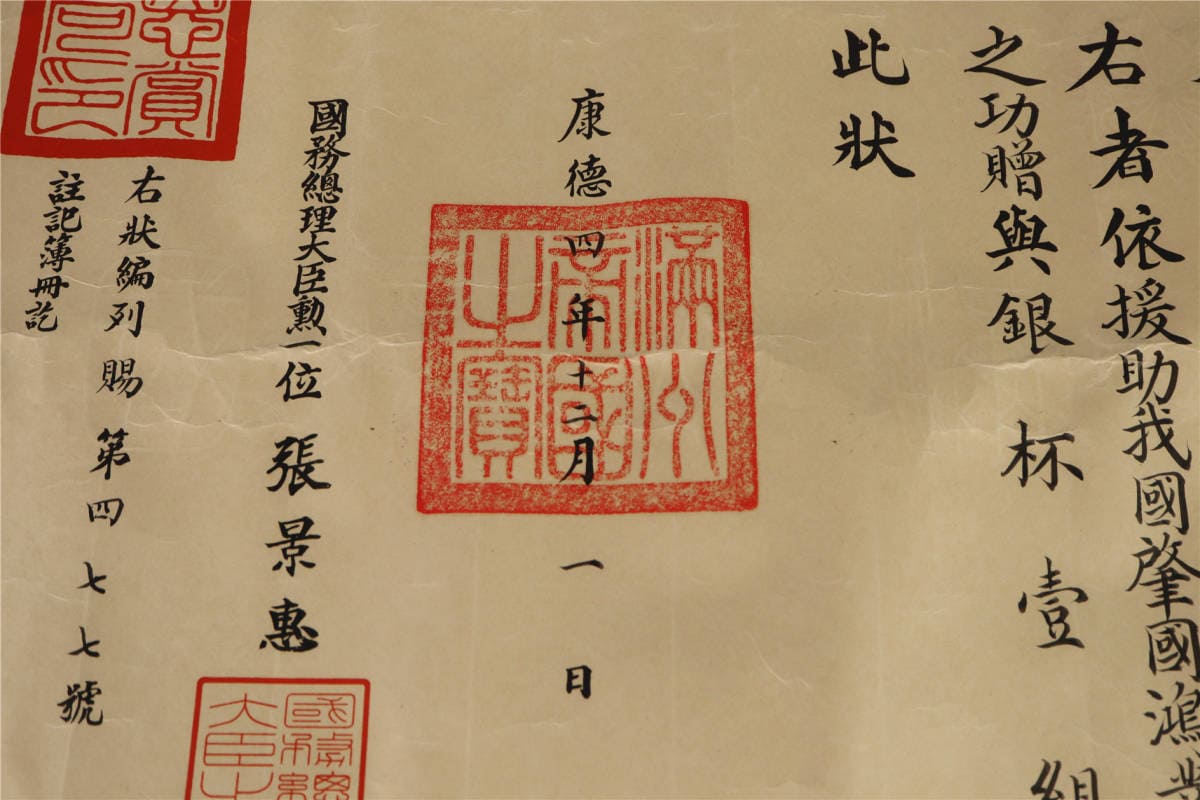 右者依援助我國肇國鴻
之功贈與銀杯壹組
此狀
康德四年十二月一日
滿洲
帝國
之寶
國務總理大臣勳一位張景惠
國務總
大臣之
右狀編列賜第四七七號
註記簿冊訖
賞
印